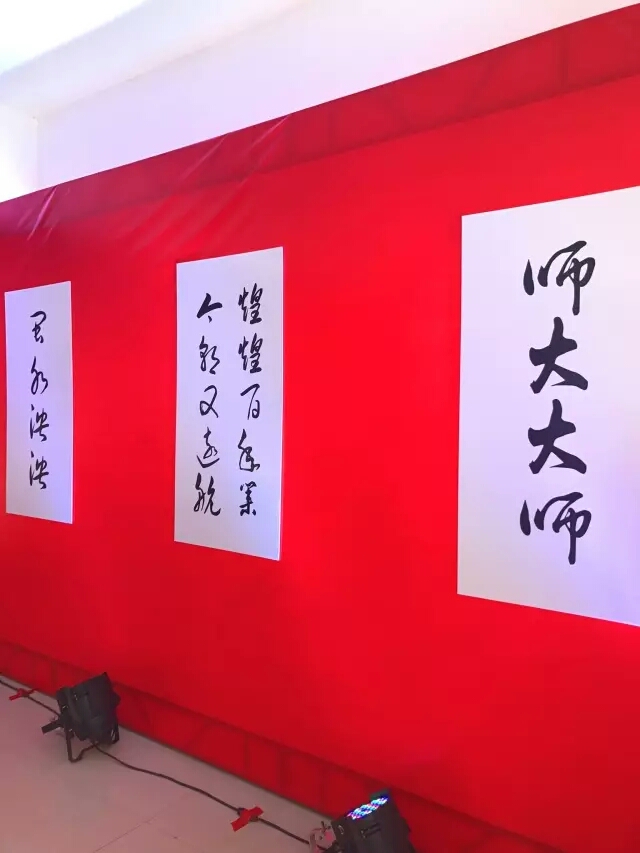 师大大师
煌煌百年业
今朝又远航
闽水泱泱